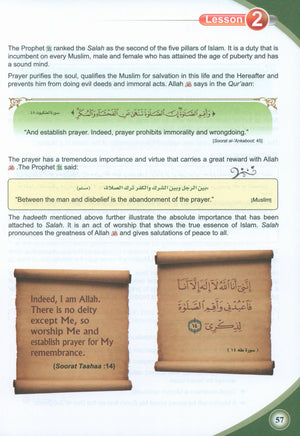 Lesson 2
The Prophet ﷺ ranked the Salah as the second of the five pillars of Islam. It is a duty that is
incumbent on every Muslim, male and female who has attained the age of puberty and has a
sound mind.
Prayer purifies the soul, qualifies the Muslim for salvation in this life and the Hereafter and
prevents him from doing evil deeds and immoral acts. Allah says in the Qur'aan:
﴿وَأَقِمِ الصَّلَوٰةَ إِنَّ الصَّلَوٰةَ تَنْهَىٰ عَنِ الْفَحْشَاءِ وَالْمُنكَرِ﴾
"And establish prayer. Indeed, prayer prohibits immorality and wrongdoing."
[Soorat al-'Ankaboot: 45]
The prayer has a tremendous importance and virtue that carries a great reward with Allah
.The Prophet ﷺ said:
«بين الرجل وبين الشرك والكفر ترك الصلاة» (مسلم)
"Between the man and disbelief is the abandonment of the prayer."
[Muslim]
The hadeeth mentioned above further illustrate the absolute importance that has been
attached to Salah. It is an act of worship that shows the true essence of Islam. Salah
pronounces the greatness of Allah and gives salutations of peace to all.
Indeed, I am Allah.
There is no deity
except Me, so
worship Me and
establish prayer for My
remembrance.
(Soorat Taahaa :14)
إِنَّنِي أَنَا اللَّهُ لَا إِلَٰهَ إِلَّا أَنَا
فَاعْبُدْنِي وَأَقِمِ الصَّلَوٰةَ
لِذِكْرِي ١٤
(سورة طه ١٤)
57